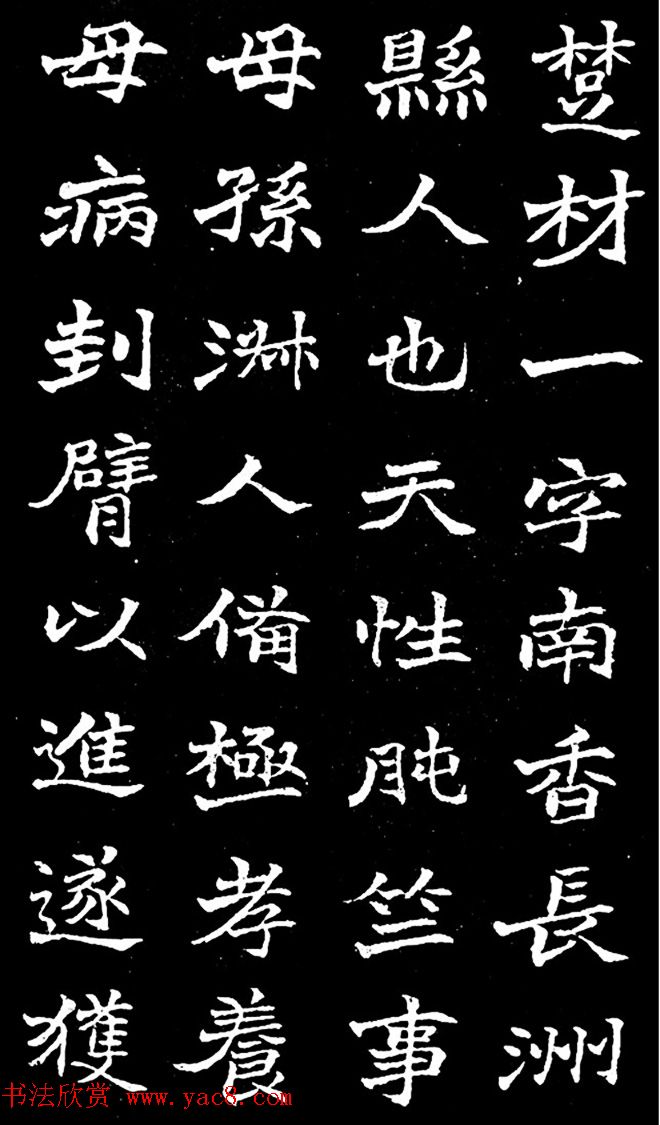 楚材一字南香長洲
縣人也天性肫竺事
母孫淋人備極孝養
母病刲臂以進遂獲
书法欣赏 www.yac8.com